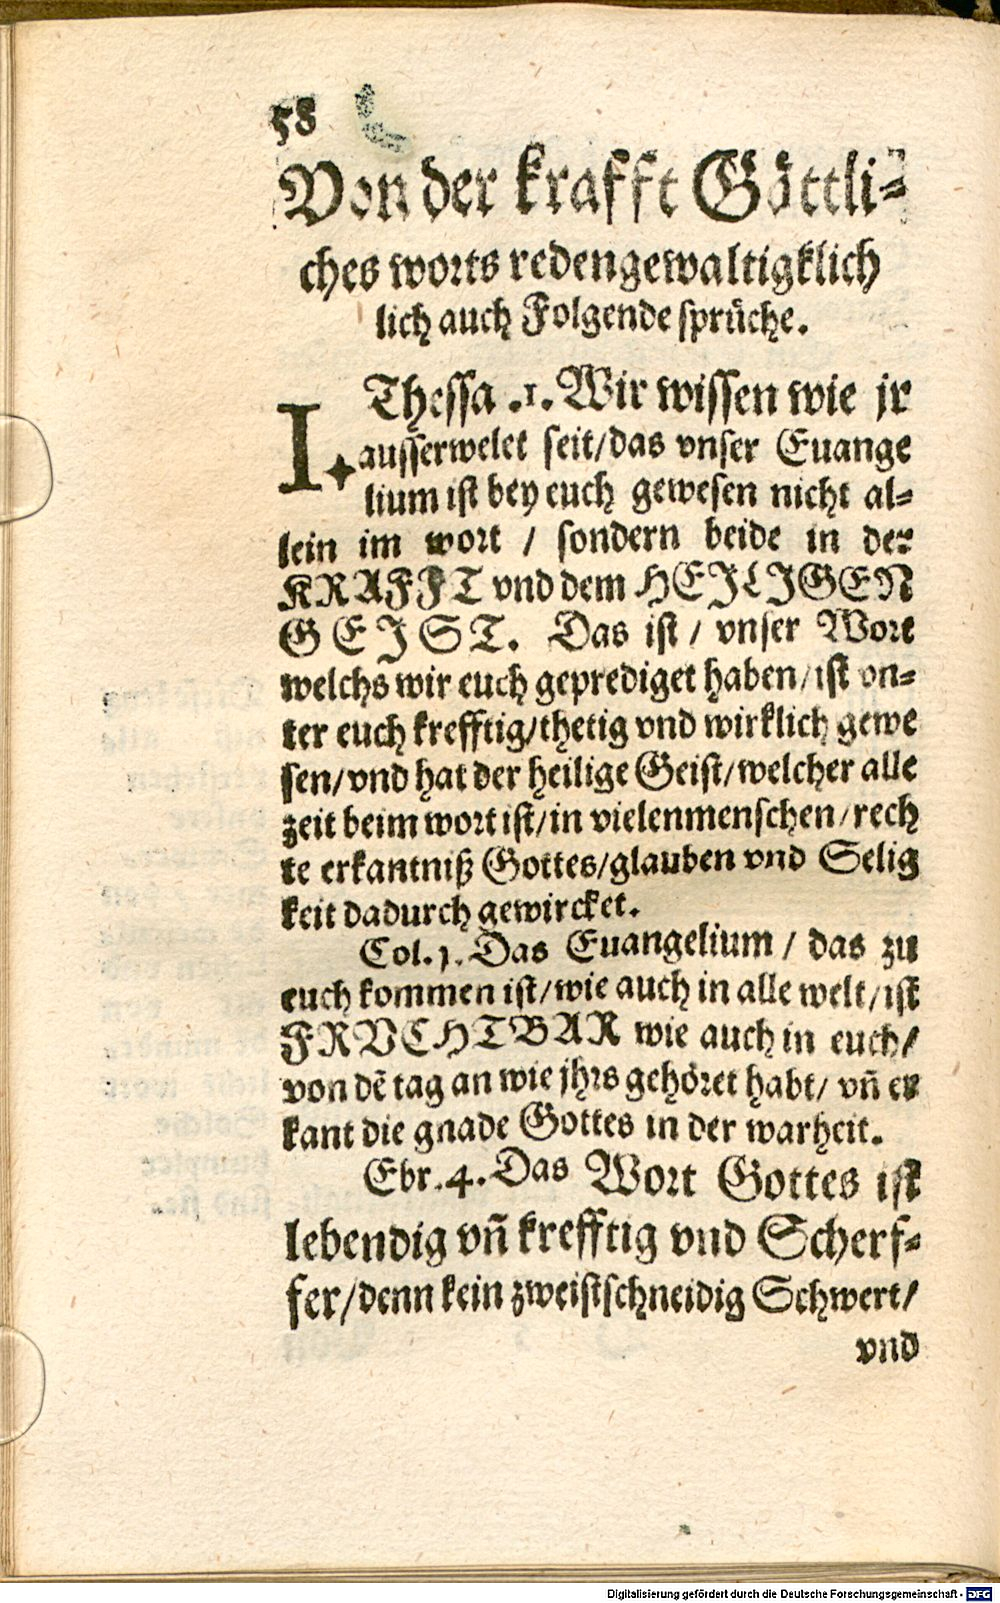 58
Von der krafft Göttli-
ches worts reden gewaltigklich
lich auch Folgende sprüche.
I. Thessa .1. Wir wissen wie jr
ausserwelet seit/das vnser Euange
lium ist bey euch gewesen nicht al-
lein im wort / sondern beide in der
KRAFFT vnd dem HEILIGEN
GEIST. Das ist / vnser Wort
welchs wir euch geprediget haben/ist vn-
ter euch krefftig/thetig vnd wirklich gewe
sen/vnd hat der heilige Geist/welcher alle
zeit beim wort ist/in vielen menschen/rech
te erkantniß Gottes/glauben vnd Selig
keit dadurch gewircket.
Col.1. Das Euangelium / das zu
euch kommen ist/wie auch in alle welt/ist
FRVCHTBAR wie auch in euch/
von dē tag an wie jhrs gehöret habt/ vñ er
kant die gnade Gottes in der warheit.
Ebr.4. Das Wort Gottes ist
lebendig vñ krefftig vnd Scherf-
fer/denn kein zweistschneidig Schwert/
vnd
Digitalisierung gefördert durch die Deutsche Forschungsgemeinschaft - DFG